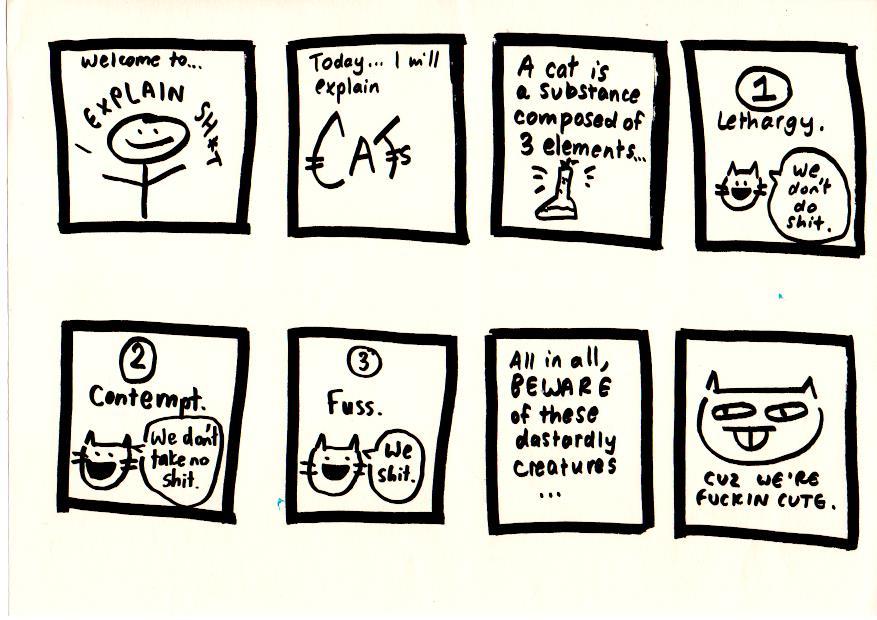 Welcome to...
EXPLAIN SH*T
Today... I will
explain
CATs
A cat is
a substance
composed of
3 elements...
1
Lethargy.
We
don't
do
shit.
2
Contempt.
We don't
take no
shit.
3
Fuss.
We
shit.
All in all,
BEWARE
of these
dastardly
creatures
...
CUZ WE'RE
FUCKIN CUTE.